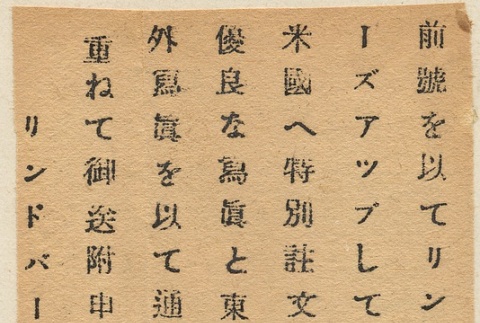 前號を以てリン
ーズアツプして
米國へ特別註文
優良な寫眞と東
外寫眞を以て通
重ねて御送附申
リンドバー